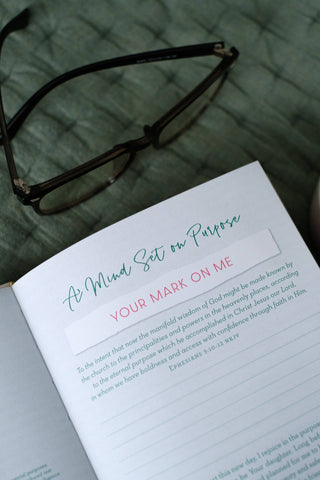 A Mind Set on Purpose
YOUR MARK ON ME
To the intent that now the manifold wisdom of God might be made known by
the church to the principalities and powers in the heavenly places, according
to the eternal purpose which he accomplished in Christ Jesus our Lord,
in whom we have boldness and access with confidence through faith in Him.
EPHESIANS 3:10-12 NKJV
this new day, I rejoice in the purpose
be Your daughter. Long before
and planned for me to